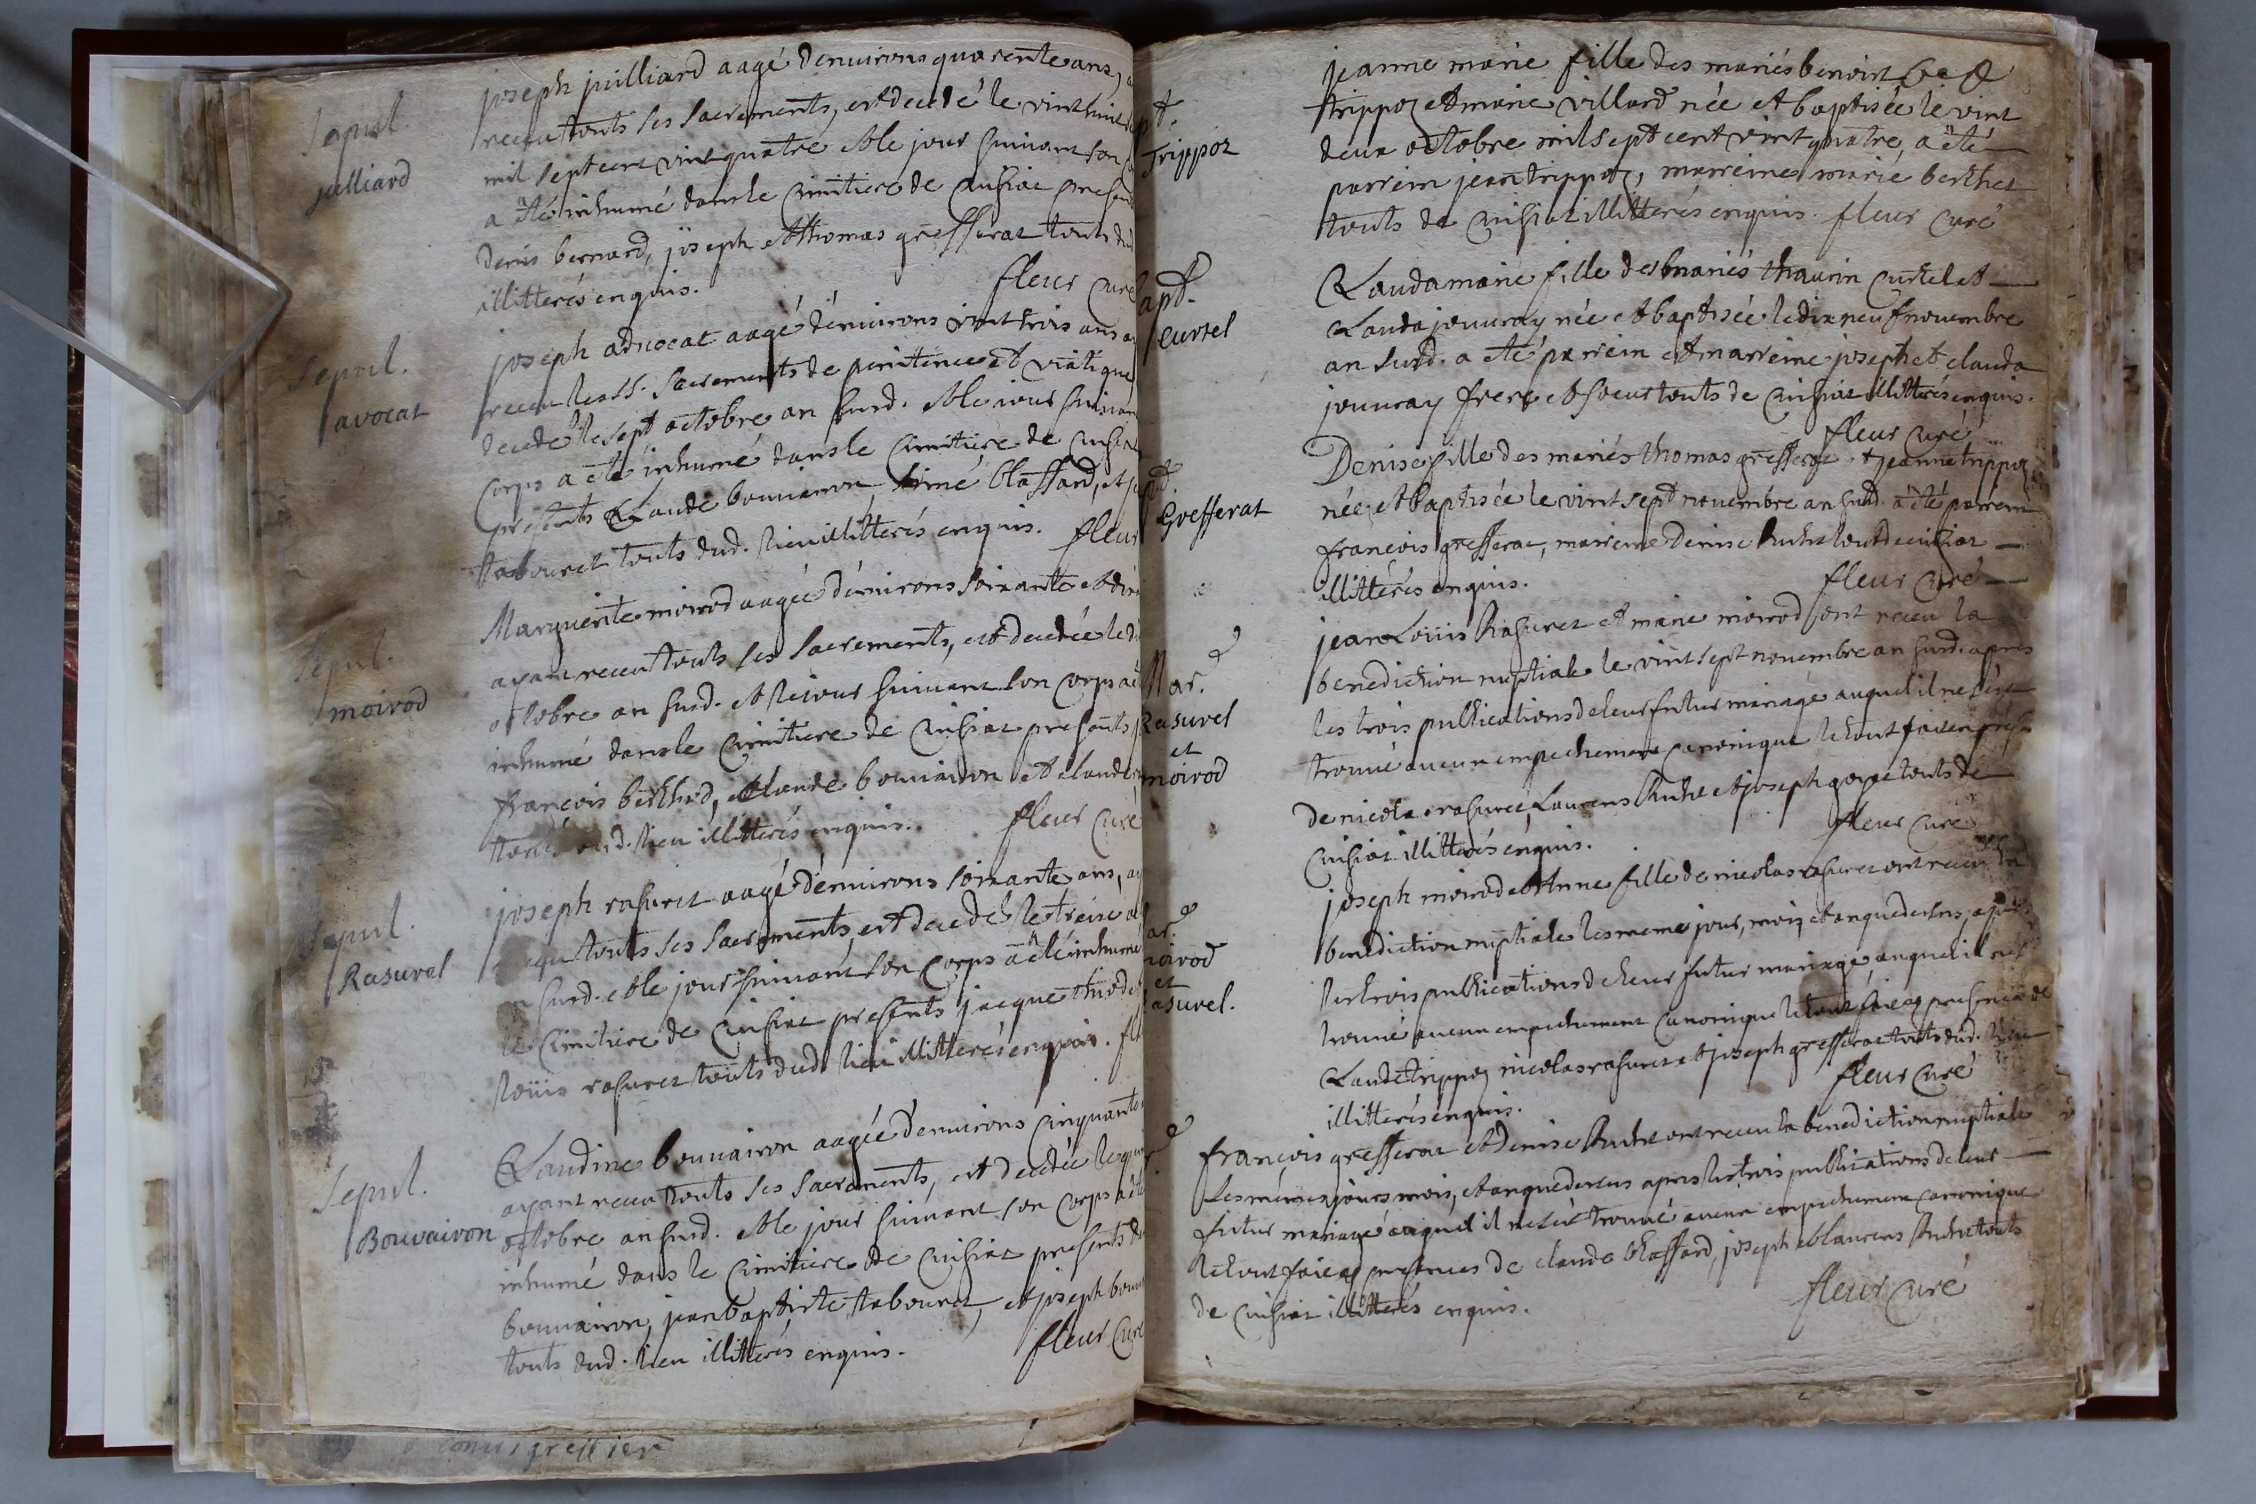 Sepul.
juilliard
joseph juilliard aagé d'environs quarente ans,
receu touts ses sacrements, est decedé le vint huit
mil sept cent vint quatre et le jour suivant son
a été inhumé dans le cimitiere de cuisiat presen
denis bernard, joseph et thomas grefferat touts dud
illitterés enquis. fleur curé
Sepul.
avocat
joseph advocat aagé d'environs vint trois ans
receu les ss. sacrements de penitence et viatique
decedé le sept octobre an susd. et le jour suivan
corps a été inhumé dans le cimitiere de cuisiat
presents Claude bouvairon, aimé blaffard, et
tabouret touts dud. lieu illitterés enquis. fleur
Sepul.
moirod
Marguerite moirod aagée d'environs soixante et dix
ayant receu touts ses sacrements, est decedée le
octobre an susd. et le jour suivant son corps a
inhumé dans le cimitiere de cuisiat presents
françois berthod, claude bouvairon et claude
touts dud. lieu illitterés enquis. fleur curé
Sepul.
Rasurel
joseph rasuret aagé d'environs soixante ans,
receu touts ses sacrements, est decedé le treise
an susd. et le jour suivant son corps a été inhumé
le cimitiere de cuisiat presents jacque
loüis rasuret touts dud. lieu illitterés enquis.
Sepul.
Bouvairon
Claudine bouvairon aagée d'environs cinquante
ayant receu touts ses sacrements, est decedée le
octobre an susd. et le jour suivant son corps a été
inhumé dans le cimitiere de cuisiat presents
bouvairon, jean baptiste tabouret, et joseph bouv
touts dud. lieu illitterés enquis. fleur curé
greffier
pt.
Trippoz
jeanne marie fille des mariés benoist
trippoz et marie villard née et baptisée le vint
deux octobre mil sept cent vint quatre, a été
parrein jean trippoz, marreine marie berthet
touts de cuisiat illitterés enquis. fleur curé
apt.
Curtel
Clauda marie fille des mariés thaurin curtel et
Clauda jouvray née et baptisée le dix neuf novembre
an susd. a été parrein et marreine joseph et clauda
jouvray frere et soeur touts de cuisiat illitterés enquis.
fleur curé
pt
Grefferat
Denise fille des mariés thomas grefferat et jeanne trippoz
née et baptisée le vint sept novembre an susd. a été parrein
françois grefferat, marreine denise tout de cuisiat
illitterés enquis. fleur curé
Mar.
Rasurel
et
moirod
jean Loüis Rasuret et marie moirod ont receu la
benediction nuptiale le vint sept novembre an susd. apres
les trois publications de leur futur mariage auquel il ne s'est
trouvé aucun empechement canonique le tout fait en pres
de nicolas rasuret, Laurens et joseph touts de
cuisiat illitterés enquis. fleur curé
ar.
moirod
et
asurel.
joseph moirod et Anne fille de nicolas rasuret ont receu la
benediction nuptiale les meme jour, mois, et an que dessus, apres
les trois publications de leur futur mariage, auquel il ne s'est
trouvé aucun empechement canonique le tout fait en presence de
Claude trippoz nicolas rasuret et joseph grefferat touts dud. lieu
illitterés enquis. fleur curé
françois grefferat et denise ont receu la benediction nuptiale
Les mémes jours mois, et an que dessus apres les trois publications de leur
futur mariage auquel il ne s'est trouvé aucun empechement canonique
le tout fait en presences de claude blaffard, joseph et laurens touts
de cuisiat illitterés enquis. fleur curé